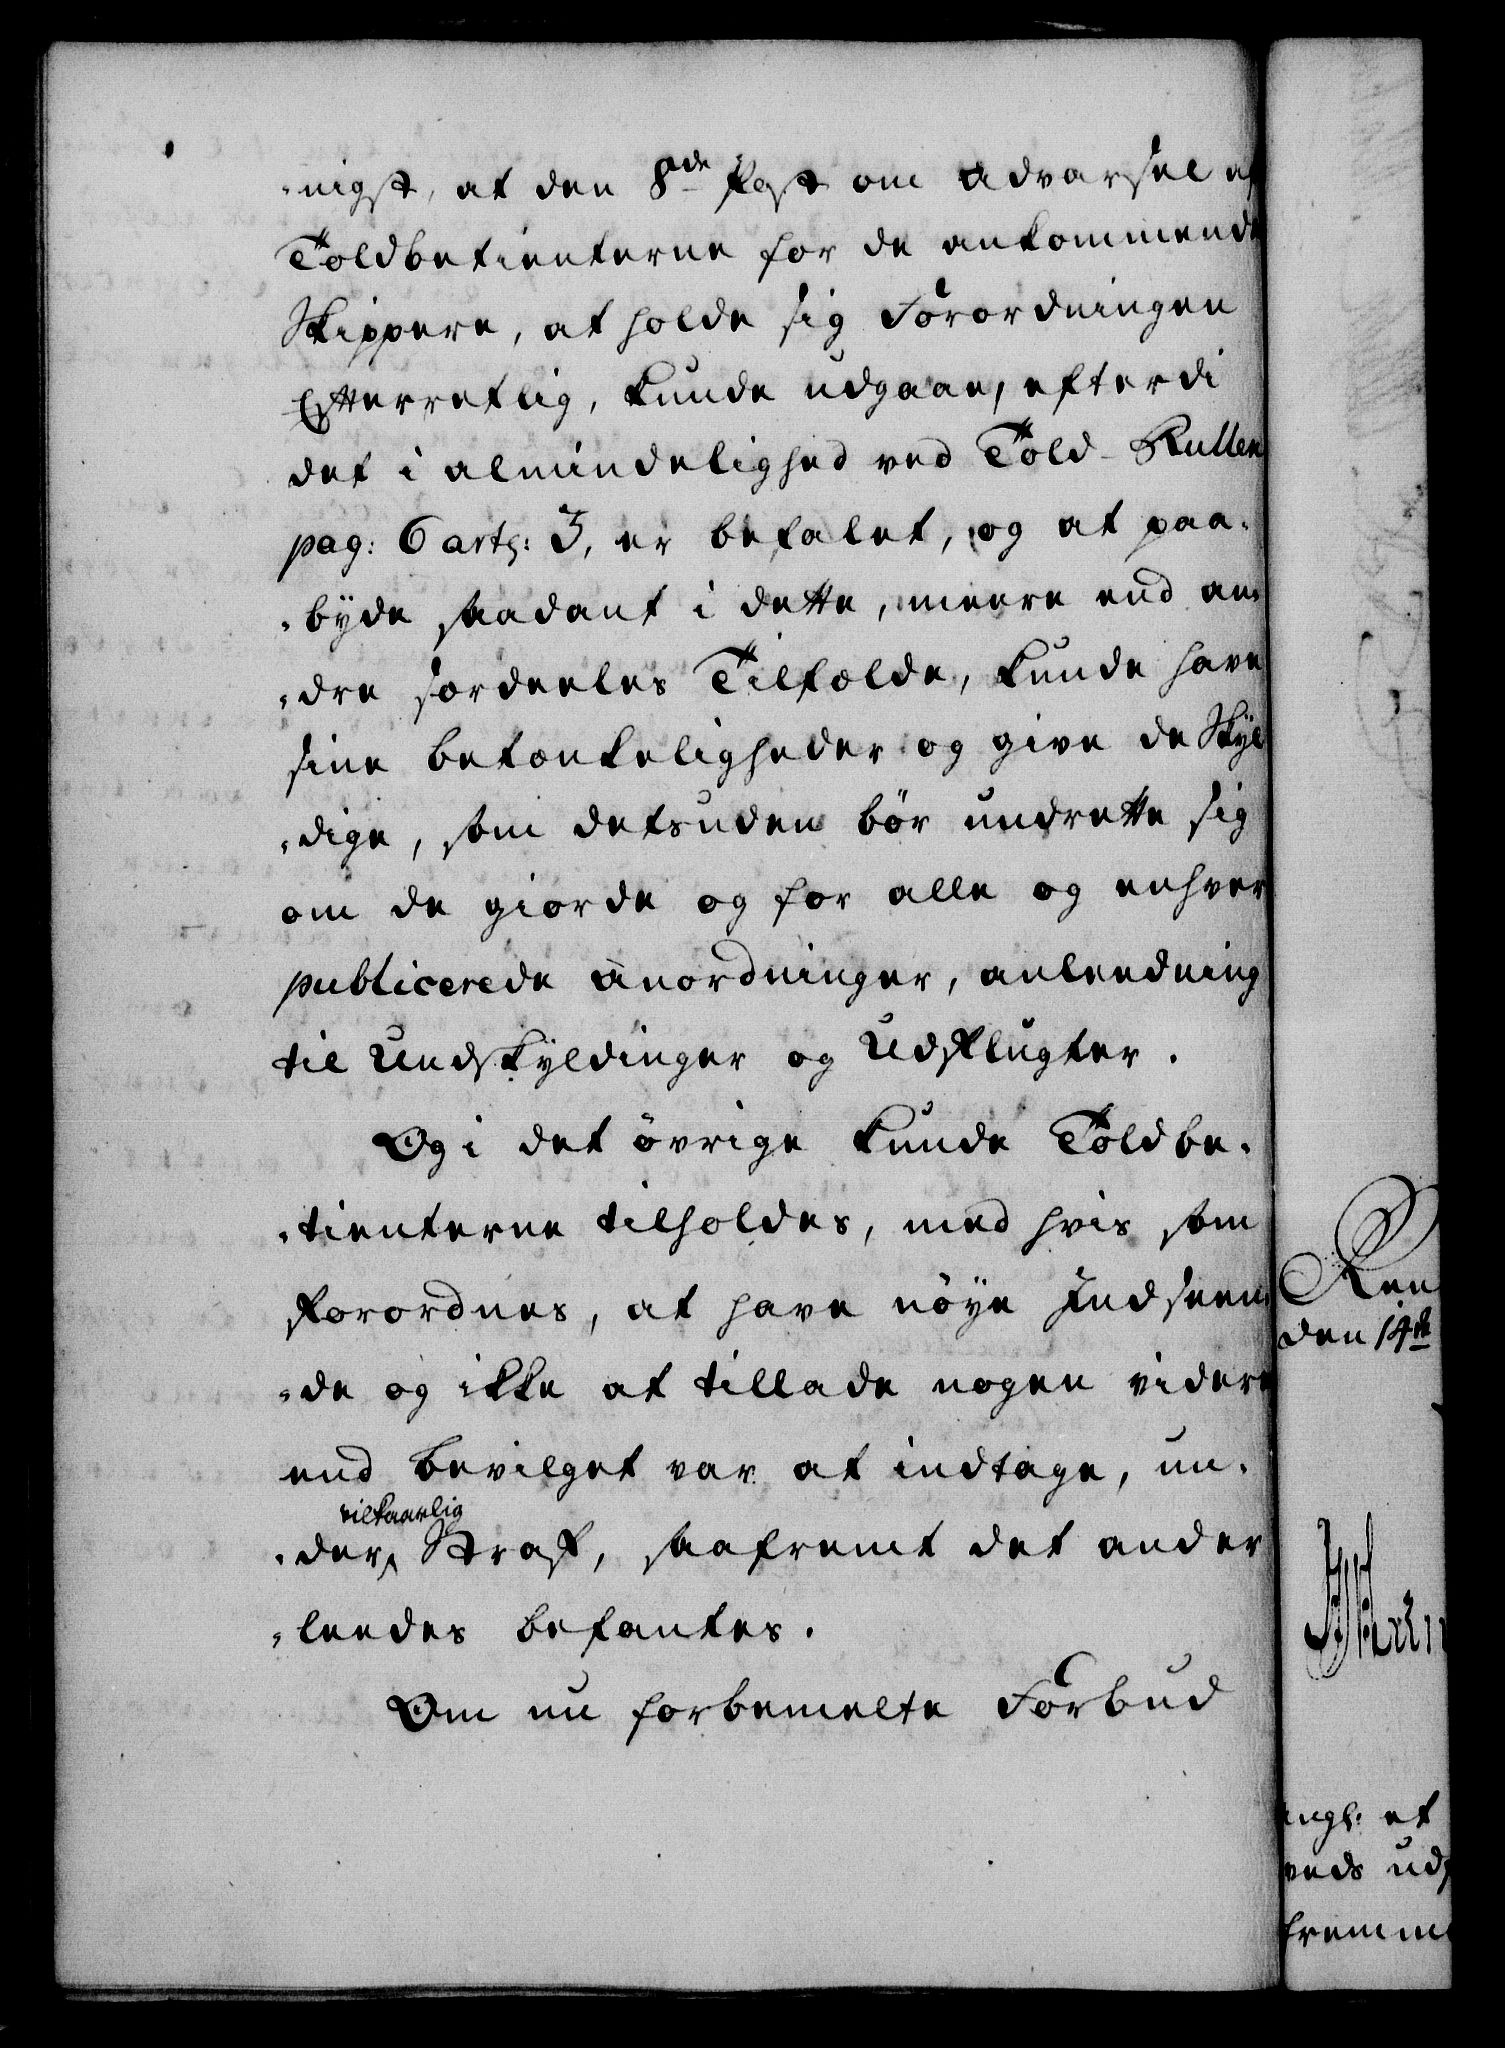 nigst, at den 8de Post om Advarsel af
Toldbetienterne for de ankommende
Skippere, at holde sig Forordningen
Efterretlig, kunde udgaae, efterdi
det i almindelighed ved Told-Rullen
pag: 6 art: 3, er befalet, og at paa-
byde saadant i dette, meere end an-
dre særdeeles Tilfælde, kunde have
sine betænkeligheder og give de Skyl
dige, som desuden bør undrette sig
om de giorde og for alle og enhver
publicerede Anordninger, anleedning
til Undskyldinger og Udflugter.
Og i det øvrige kunde Toldbe-
tienterne tilholdes, med hvis som
forordnes, at have nøye Indseen-
de og ikke at tillade nogen videre
end bevilget var at indtage, un-
vilkaarlig
der Straf, saafremt det ander
leedes befantes.
Om nu forbemelte Forbud
Ren
den 14de
et
fremm